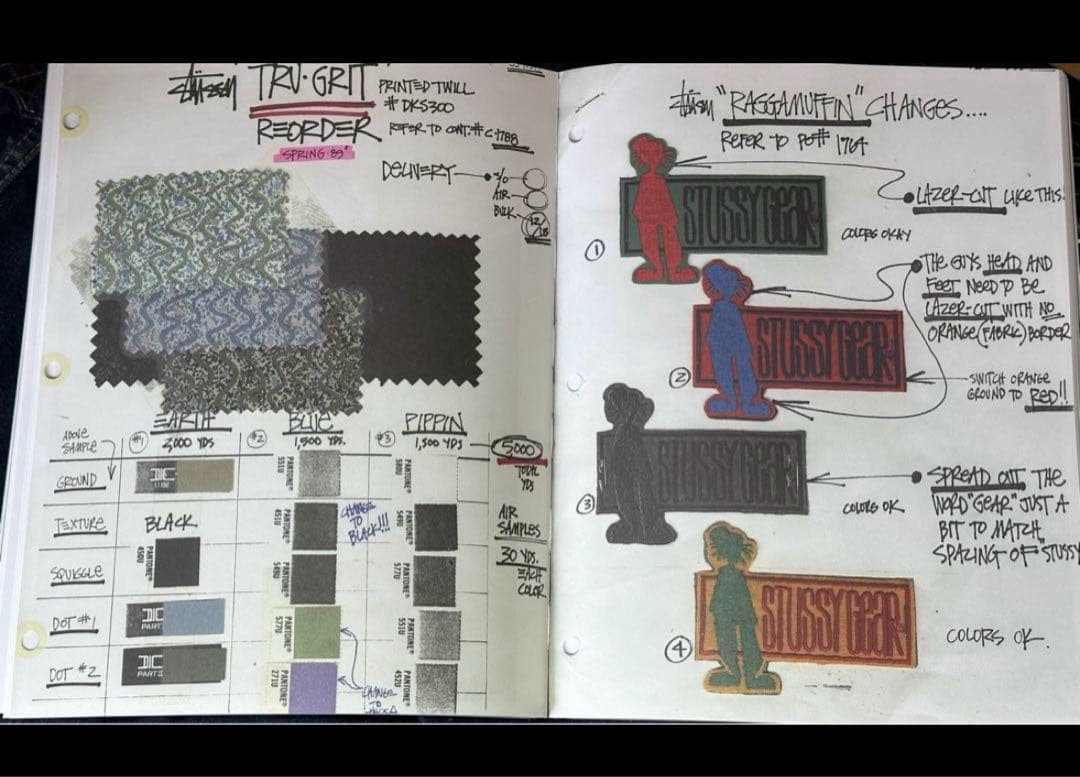 Stüssy "TRU·GRIT"
PRINTED TWILL
# DKS300
REORDER
REFER TO CONT.# C-1788
"SPRING 89"
DELIVERY
S/O
AIR
BULK
12/18
EARTH
2,000 YDS
BLUE
1,500 YDS.
PIPPIN
1,500 YDS
ABOVE
SAMPLE
#1
#2
#3
5000
TOTAL
YDS
GROUND
DIC
PANTONE®
551U
PANTONE®
580U
TEXTURE
BLACK
PANTONE®
451U
CHANGE
TO
BLACK!!!
PANTONE®
549U
AIR
SAMPLES
SQUIGGLE
PANTONE®
450U
PANTONE®
549U
PANTONE®
577U
30 YDS.
EACH
COLOR
DOT #1
DIC
PART II
PANTONE®
577U
PANTONE®
551U
DOT #2
DIC
PART II
PANTONE®
271U
CHANGE
TO
PANTONE®
452U
Stüssy "RAGGAMUFFIN" CHANGES....
REFER TO PO# 1764
STUSSY GEAR
LAZER-CUT LIKE THIS.
COLORS OKAY
1
THE GUYS HEAD AND
FEET NEED TO BE
LAZER-CUT WITH NO
ORANGE (FABRIC) BORDER
STUSSY GEAR
2
SWITCH ORANGE
GROUND TO RED!!
STUSSY GEAR
3
COLORS OK
SPREAD OUT THE
WORD "GEAR" JUST A
BIT TO MATCH
SPACING OF "STUSSY
STUSSY GEAR
4
COLORS OK.